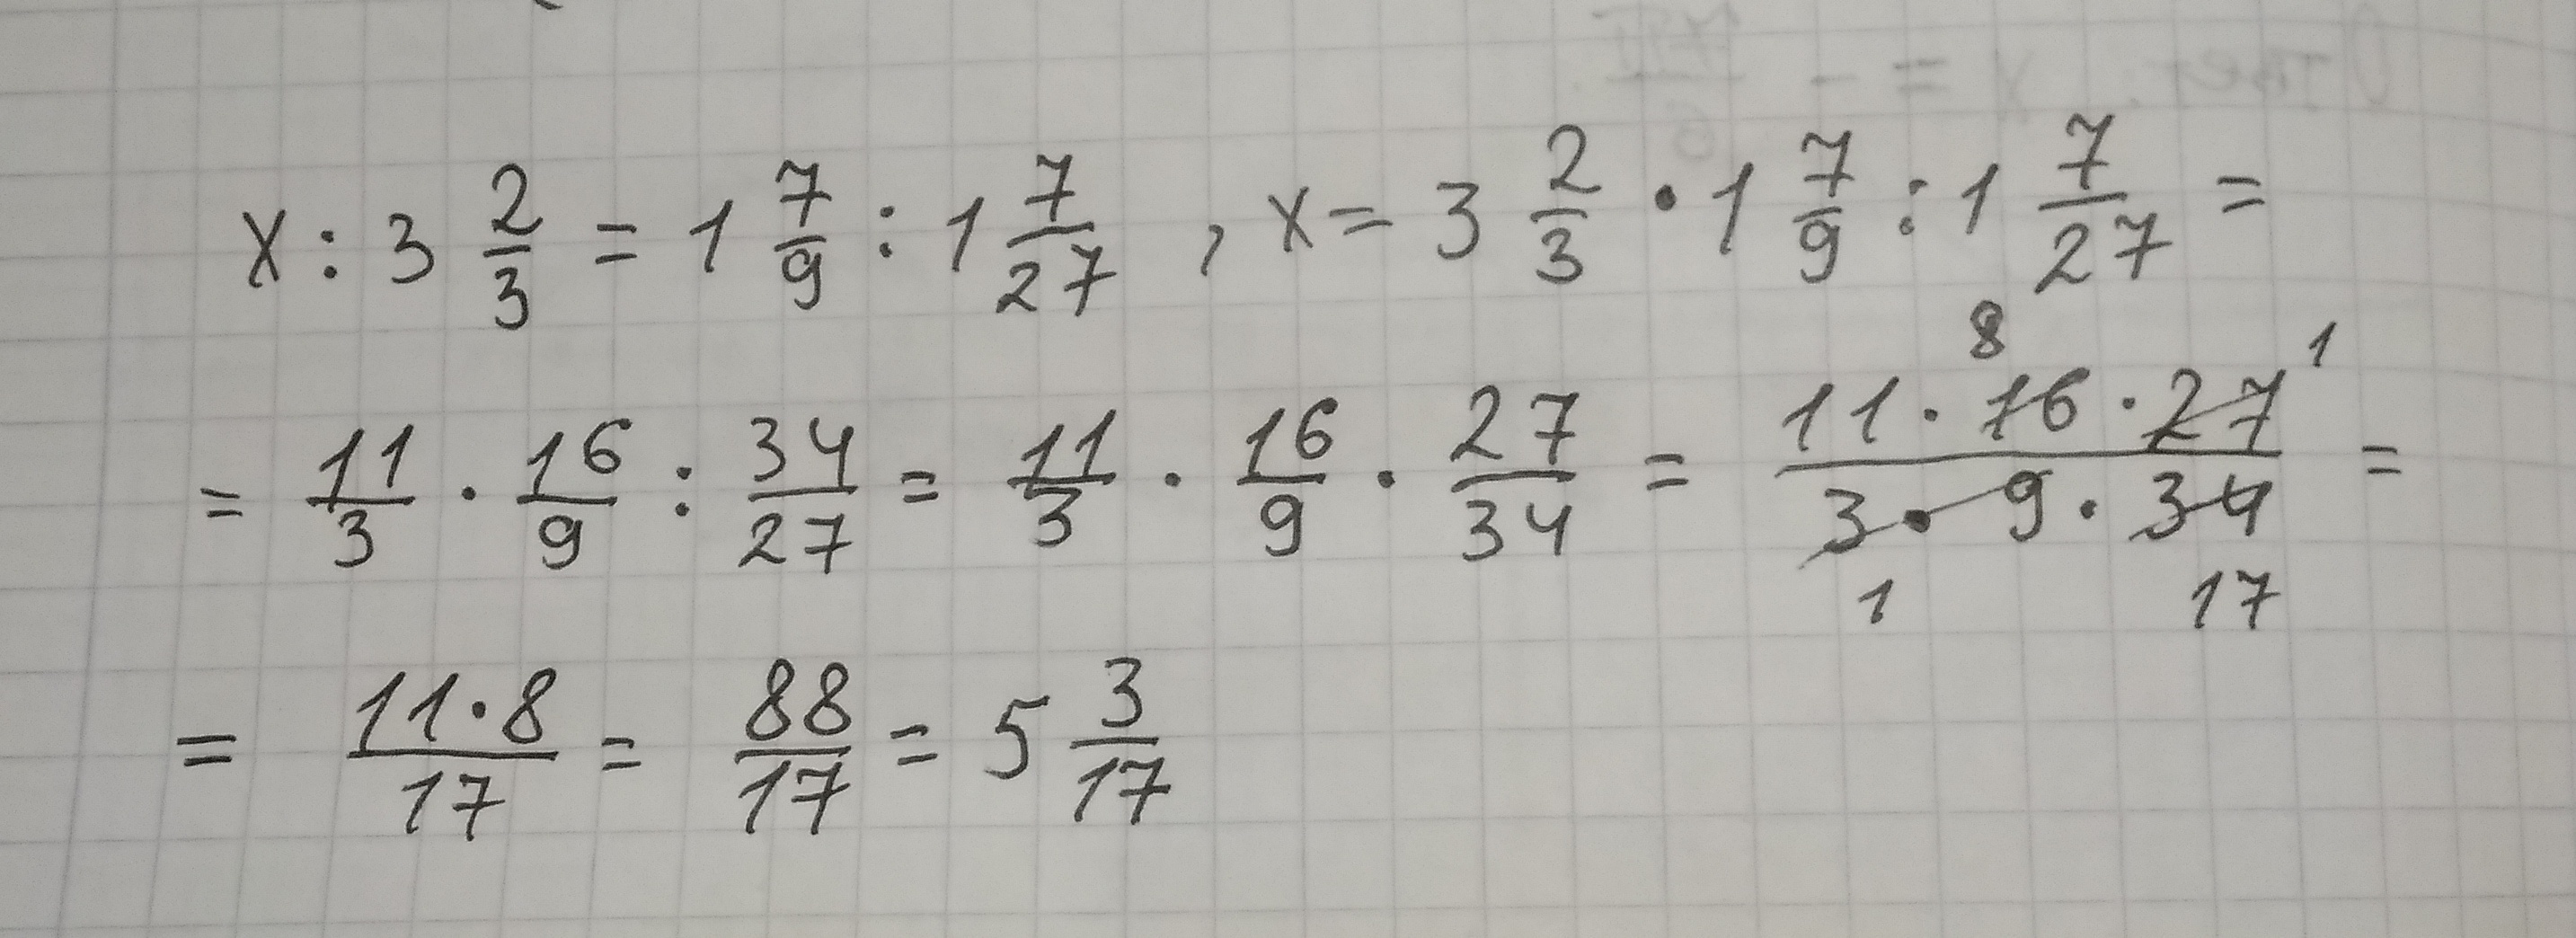 x : 3 2/3 = 1 7/9 : 1 7/27 , x = 3 2/3 · 1 7/9 : 1 7/27 =
= 11/3 · 16/9 : 34/27 = 11/3 · 16/9 · 27/34 = 11 · 16 8 · 27 1 / 3 · 9 1 · 34 17 =
= 11·8/17 = 88/17 = 5 3/17